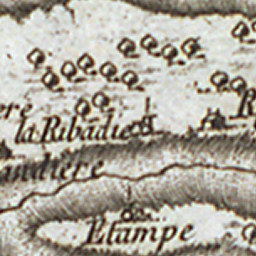 la Ribadie
andière
Etampe